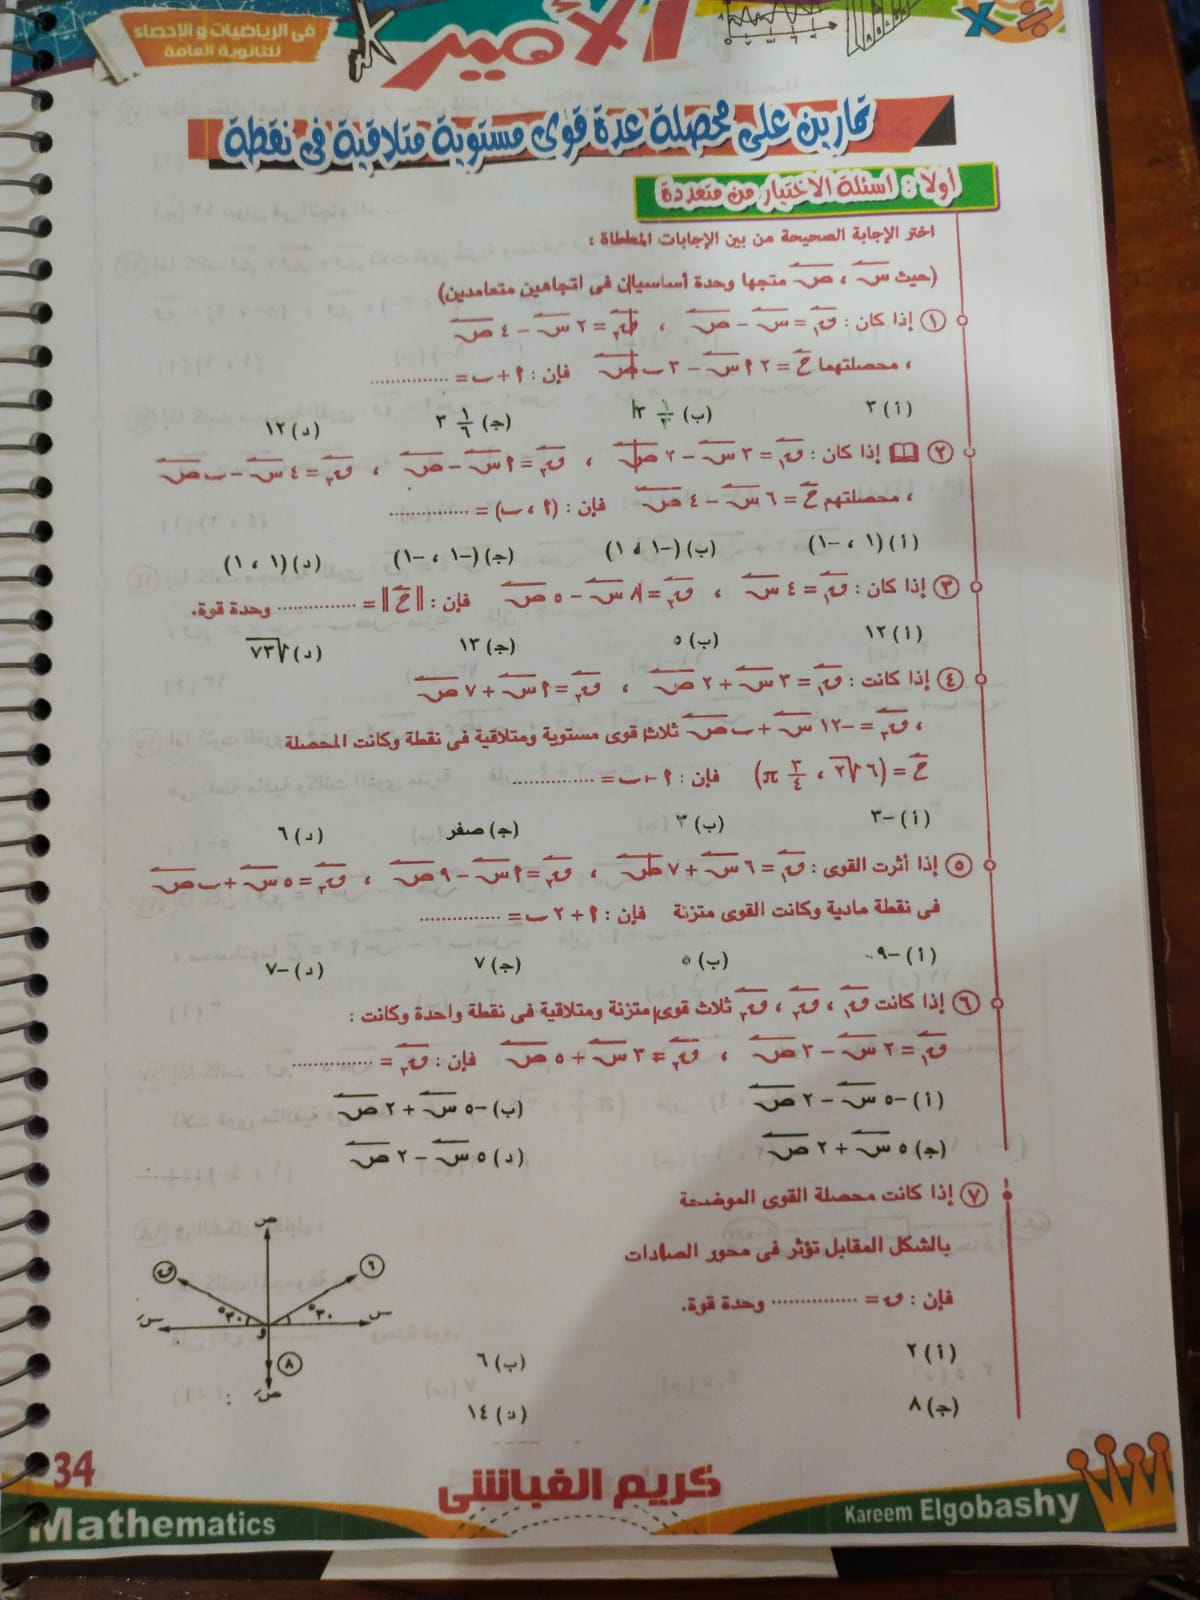 فى الرياضيات و الإحصاء
للثانوية العامة
الأمير
تمارين على محصلة عدة قوى مستوية متلاقية فى نقطة
أولاً : اسئلة الاختيار من متعددة
اختر الإجابة الصحيحة من بين الإجابات المعطاة :
(حيث س ، ص متجها وحدة أساسيان فى اتجاهين متعامدين)
١ إذا كان : ق١ = س − ص ، ق٢ = ٢ س − ٤ ص
، محصلتهما ح = ٢ ٩ س − ٣ ب ص فإن : ٩ + ب = ...............
(أ) ٣ (ب) ١/٢ ٣ (جـ) ١/٦ ٣ (د) ١٢
٢ إذا كان : ق١ = ٣ س − ٢ ص ، ق٢ = ٩ س − ص ، ق٣ = ٤ س − ب ص
، محصلتهم ح = ٦ س − ٤ ص فإن : (٩ ، ب) = ...............
(أ) (١ ، −١) (ب) (−١ ، ١) (جـ) (−١ ، −١) (د) (١ ، ١)
٣ إذا كان : ق١ = ٤ س ، ق٢ = ٨ س − ٥ ص فإن : ‖ح‖ = ............... وحدة قوة.
(أ) ١٢ (ب) ٥ (جـ) ١٣ (د) √٧٣
٤ إذا كانت : ق١ = ٣ س + ٢ ص ، ق٢ = ٩ س + ٧ ص
، ق٣ = −١٢ س + ب ص ثلاث قوى مستوية ومتلاقية فى نقطة وكانت المحصلة
ح = (٦ √٢ ، ٣/٤ π) فإن : ٩ + ب = ...............
(أ) −٣ (ب) ٣ (جـ) صفر (د) ٦
٥ إذا أثرت القوى : ق١ = ٦ س + ٧ ص ، ق٢ = ٩ س − ٩ ص ، ق٣ = ٥ س + ب ص
فى نقطة مادية وكانت القوى متزنة فإن : ٩ + ٢ ب = ...............
(أ) −٩ (ب) ٥ (جـ) ٧ (د) −٧
٦ إذا كانت ق١ ، ق٢ ، ق٣ ثلاث قوى متزنة ومتلاقية فى نقطة واحدة وكانت :
ق١ = ٢ س − ٣ ص ، ق٢ = ٣ س + ٥ ص فإن : ق٣ = ...............
(أ) −٥ س − ٢ ص (ب) −٥ س + ٢ ص
(جـ) ٥ س + ٢ ص (د) ٥ س − ٢ ص
٧ إذا كانت محصلة القوى الموضحة
بالشكل المقابل تؤثر فى محور الصادات
فإن : ق = ............... وحدة قوة.
(أ) ٢ (ب) ٦
(جـ) ٨ (د) ١٤
ص
ق ٦
٣٠° ٣٠°
سَ و س
٨
صَ
34
كريم الغباشى
Mathematics
Kareem Elgobashy